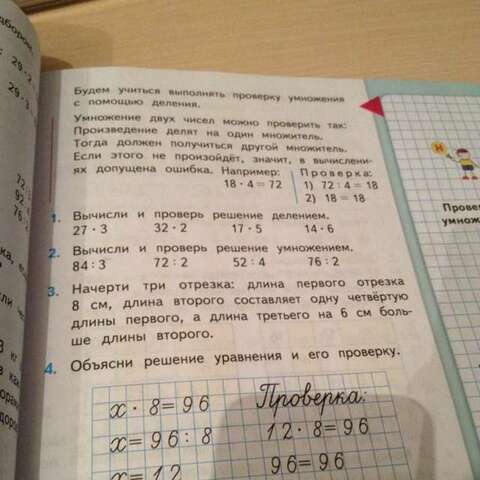 Будем учиться выполнять проверку умножения
с помощью деления.
Умножение двух чисел можно проверить так:
Произведение делят на один множитель.
Тогда должен получиться другой множитель.
Если этого не произойдёт, значит, в вычислени-
ях допущена ошибка. Например: Проверка:
18 · 4 = 72 1) 72 : 4 = 18
2) 18 = 18
1. Вычисли и проверь решение делением.
27 · 3 32 · 2 17 · 5 14 · 6
2. Вычисли и проверь решение умножением.
84 : 3 72 : 2 52 : 4 76 : 2
3. Начерти три отрезка: длина первого отрезка
8 см, длина второго составляет одну четвёртую
длины первого, а длина третьего на 6 см боль-
ше длины второго.
4. Объясни решение уравнения и его проверку.
x · 8 = 96 Проверка:
x = 96 : 8 12 · 8 = 96
x = 12 96 = 96
Н